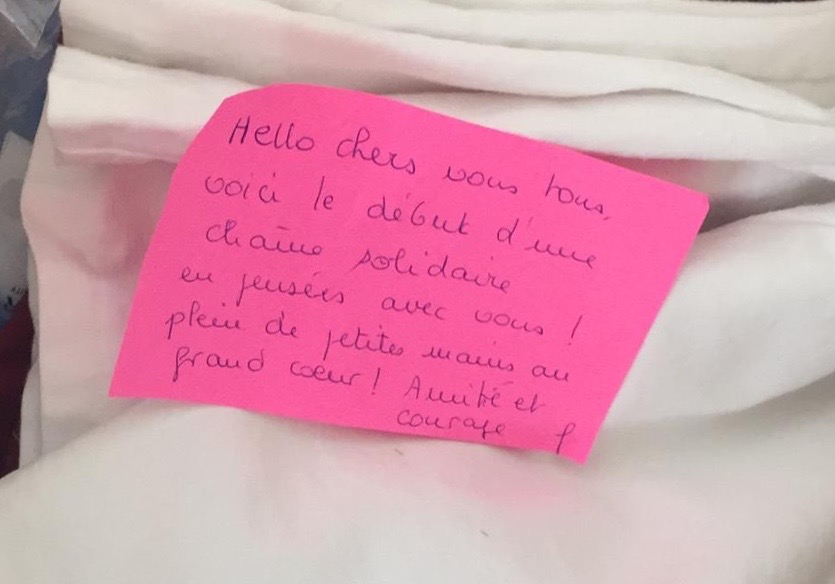 Hello chers vous tous,
voici le début d'une
chaîne solidaire
en pensées avec vous !
plein de petites mains au
grand coeur ! Amitié et
courage f